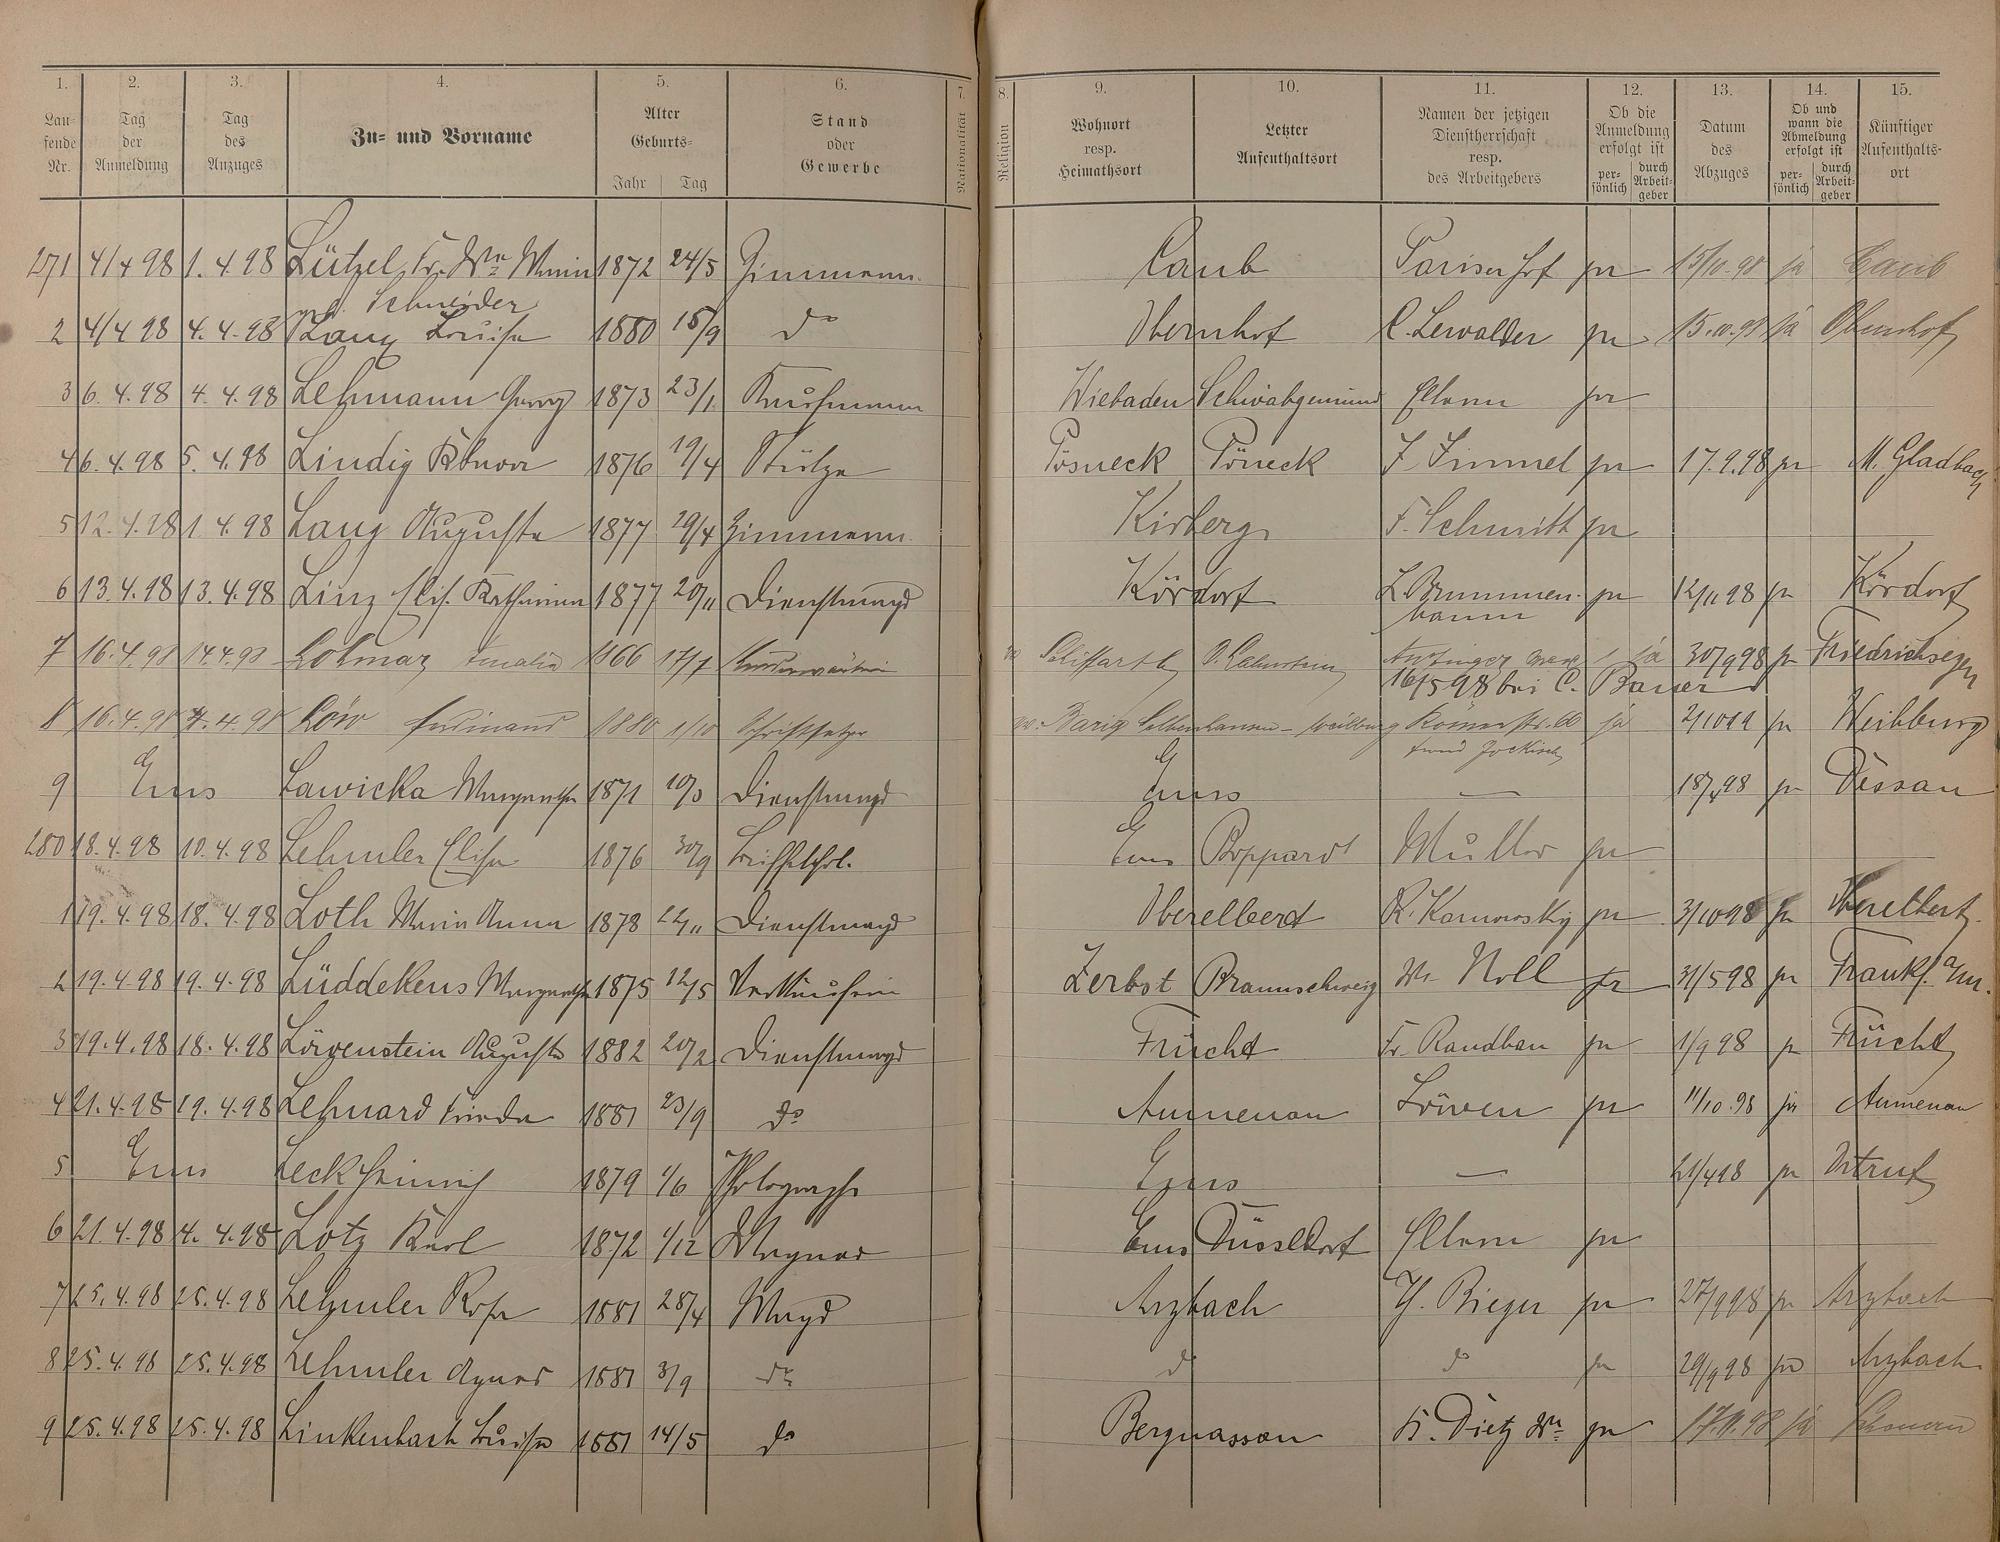 1. 2. 3. 4. 5. 6. 7. 8. 9. 10. 11. 12. 13. 14. 15.
Lau- fende Nr. Tag der Anmeldung Tag des Anzuges Zu- und Vorname Alter Geburts- Jahr Tag Stand oder Gewerbe Nationalität Religion Wohnort resp. Heimathsort Letzter Aufenthaltsort Namen der jetzigen Dienstherrschaft resp. des Arbeitgebers Ob die Anmeldung erfolgt ist per- sönlich durch Arbeit- geber Datum des Abzuges Ob und wann die Abmeldung erfolgt ist per- sönlich durch Arbeit- geber Künftiger Aufenthalts- ort
271 4/4 98 1. 4. 98 Lützel, Fr. Ww 1872 24/5 Zimmerm. Caub Pariser Hof pr 15/10.98 ja Caub
Schneider
2 4/4 98 4. 4. 98 Lang Louise 1880 15/9 do Obernhof C. Lewalder pr 15.10.98 ja Obernhof
3 6. 4. 98 4. 4. 98 Lehmann Georg 1873 23/1 Kaufmann Wiebaden Schwäbgemünd Eltern pr
4 6. 4. 98 5. 4. 98 Lindig 1876 19/4 Stütze Pösneck Pöneck F. Zimmel pr 17. 9. 98 pr M. Gladbach
5 12. 4. 98 1. 4. 98 Lang Auguste 1877 29/4 Zimmerm. Kirberg F. Schmitt pr
6 13. 4. 98 13. 4. 98 Linz Elis. Katharina 1877 20/11 Dienstmagd Kördorf L. Brummen- baum pr 12/11 98 pr Kördorf
7 16. 4. 98 14. 4. 98 Lotmaz Amalie 1866 17/7 O. Lahnstein ja 30/9 98 pr Friedrichsegen
16/5 98 bei C. Bauer
8 16. 4. 98 4. 4. 98 Löw Ferdinand 1880 1/10 Schriftsetzer Weilburg Römerstr. ja pr Weilburg
9 Ems Lawicka Margarethe 1871 10/3 Dienstmagd Ems — 18/4 98 pr Dessau
280 18. 4. 98 10. 4. 98 Lehmler Elise 1876 30/9 Ems Boppard Müller pr
1 19. 4. 98 18. 4. 98 Loth Maria Anna 1878 22/11 Dienstmagd Oberelbert R. Karnowsky pr 3/10 98 pr Oberelbert.
2 19. 4. 98 19. 4. 98 Lüddekens Margarethe 1875 12/5 Verkäuferin Zerbst Braunschweig Ww Noll pr 31/5 98 pr Frankf. a/M.
3 19. 4. 98 18. 4. 98 Löwenstein Auguste 1882 20/2 Dienstmagd Frücht Fr. Randhan pr 1/9 98 pr Frücht
4 21. 4. 98 19. 4. 98 Lehnard Frieda 1881 23/9 do Aumenau Löwen pr 11/10. 98 ja Aumenau
5 Ems Leck Heinrich 1879 1/6 Photograph Ems — 21/4 98 pr
6 21. 4. 98 4. 4. 98 Lotz Karl 1872 1/12 Wagner Ems Düsseldorf Eltern pr
7 25. 4. 98 25. 4. 98 Lehmler Rosa 1881 28/4 Magd Arzbach H. Rieger pr 27/9 98 pr Arzbach
8 25. 4. 98 25. 4. 98 Lehmler Agnes 1881 3/9 do do do pr 29/9 98 pr Arzbach
9 25. 4. 98 25. 4. 98 Linkenbach Luise 1881 14/5 do Bergnassau K. Dietz Ww pr 17.11.98 ja